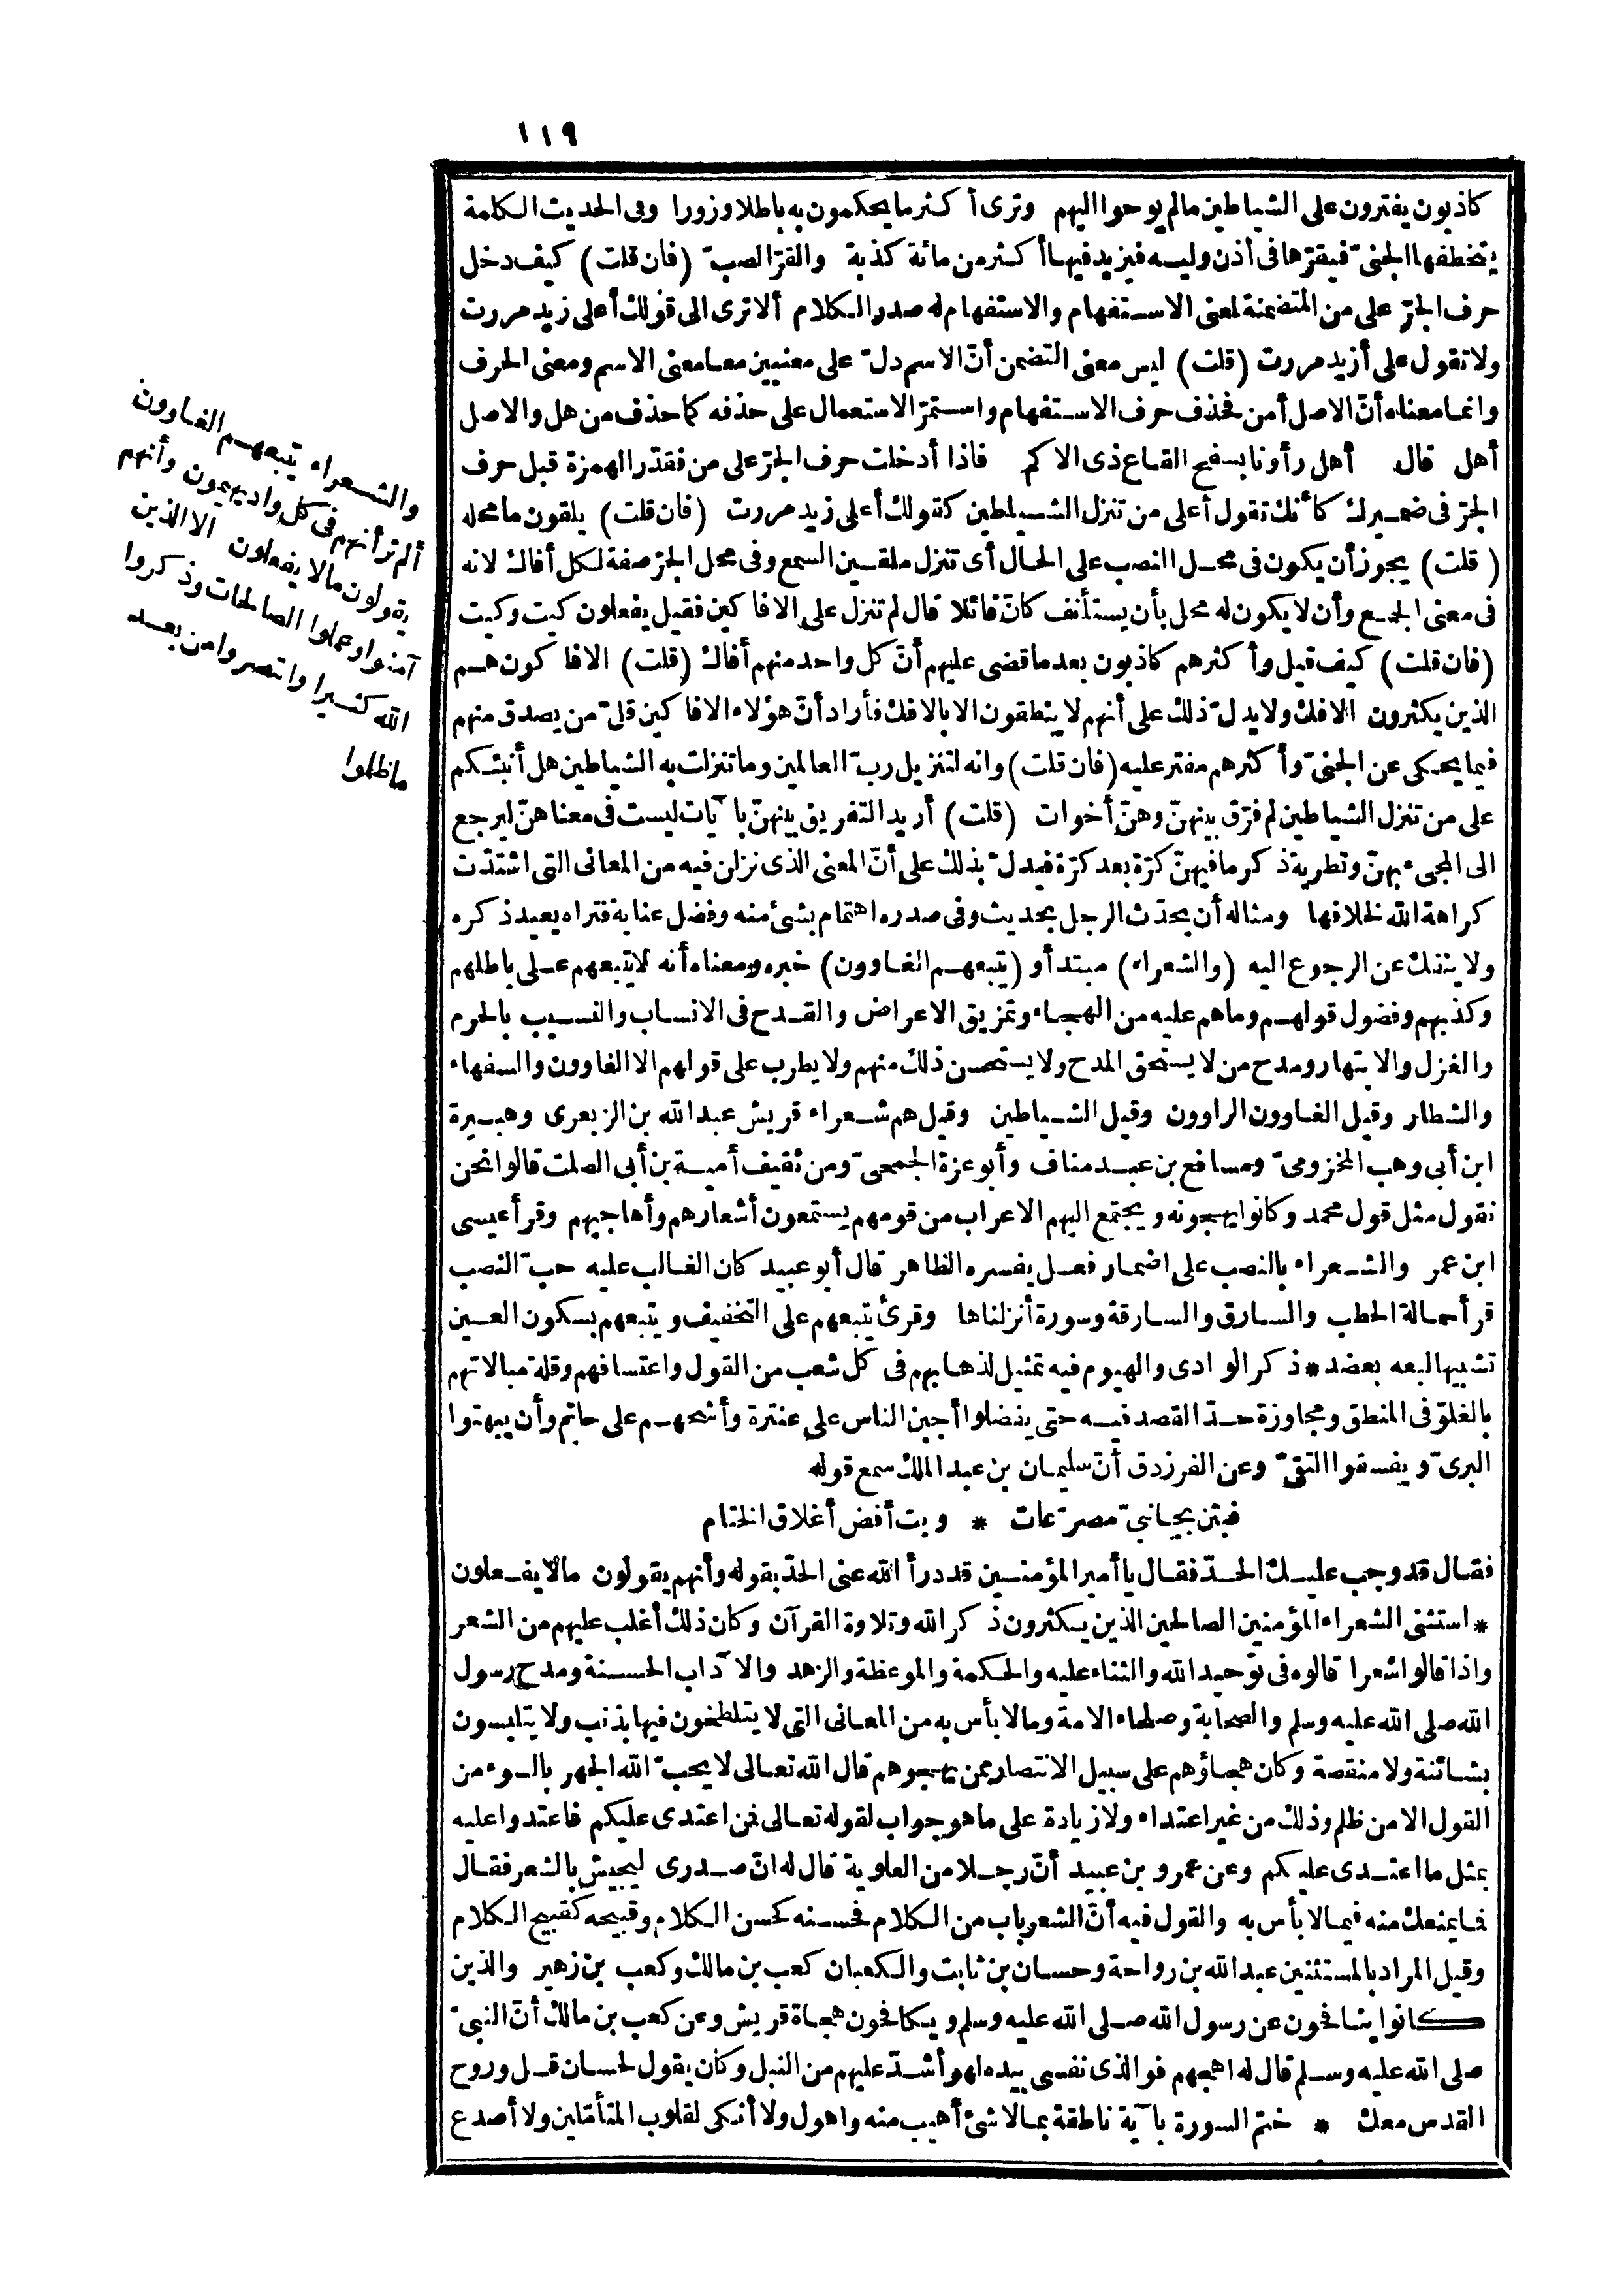 ١١٩
كاذبون يفترون على الشياطين مالم يوحوا اليهم وترى أكثر ما يحكمون به باطلا وزورا وفى الحديث الكلمة
يتخطفها الجنىّ فيقرّها فى أذن وليه فيزيد فيها أكثر من مائة كذبة والقرّ الصبّ (فان قلت) كيف دخل
حرف الجرّ على من المتضمنة لمعنى الاستفهام والاستفهام له صدر الكلام ألا ترى الى قولك أعلى زيد مررت
ولا تقول على أزيد مررت (قلت) ليس معنى التضمن أنّ الاسم دلّ على معنيين معا معنى الاسم ومعنى الحرف
وانما معناه أنّ الاصل أمن فحذف حرف الاستفهام واستمرّ الاستعمال على حذفه كما حذف من هل والاصل
أهل قال أهل رأونا بسفح القاع ذى الاكم فاذا أدخلت حرف الجرّ على من فقدّر الهمزة قبل حرف
الجرّ فى ضميرك كأنك تقول أعلى من تنزل الشياطين كقولك أعلى زيد مررت (فان قلت) يلقون ما محله
(قلت) يجوز أن يكون فى محل النصب على الحال أى تنزل ملقين السمع وفى محل الجرّ صفة لكل أفاك لانه
فى معنى الجمع وأن لا يكون له محل بأن يستأنف كأنّ قائلا قال لم تنزل على الافاكين فقيل يفعلون كيت وكيت
(فان قلت) كيف قيل وأكثرهم كاذبون بعد ما قضى عليهم أنّ كل واحد منهم أفاك (قلت) الافاكون هم
الذين يكثرون الافك ولا يدلّ ذلك على أنهم لا ينطقون الا بالافك فأراد أنّ هؤلاء الافاكين قلّ من يصدق منهم
فيما يحكى عن الجنىّ وأكثرهم مفتر عليه (فان قلت) وانه لتنزيل ربّ العالمين وما تنزلت به الشياطين هل أنبئكم
على من تنزل الشياطين لم فرّق بينهنّ وهنّ أخوات (قلت) أريد التفريق بينهنّ بآيات ليست فى معناهنّ ليرجع
الى المجىء بهنّ وتطرية ذكر ما فيهنّ كرّة بعد كرّة فيدلّ بذلك على أنّ المعنى الذى نزلن فيه من المعانى التى اشتدّت
كراهة الله لخلافها ومثاله أن يحدّث الرجل بحديث وفى صدره اهتمام بشئ منه وفضل عناية فتراه يعيد ذكره
ولا ينفك عن الرجوع اليه (والشعراء) مبتدأ و (يتبعهم الغاوون) خبره ومعناه أنه لا يتبعهم على باطلهم
وكذبهم وفضول قولهم وما هم عليه من الهجاء وتمزيق الاعراض والقدح فى الانساب والنسيب بالحرم
والغزل والابتهار ومدح من لا يستحق المدح ولا يستحسن ذلك منهم ولا يطرب على قولهم الا الغاوون والسفهاء
والشطار وقيل الغاوون الراوون وقيل الشياطين وقيل هم شعراء قريش عبد الله بن الزبعرى وهبيرة
ابن أبى وهب المخزومىّ ومسافع بن عبد مناف وأبو عزة الجمحىّ ومن ثقيف أمية بن أبى الصلت قالوا نحن
نقول مثل قول محمد وكانوا يهجونه ويجتمع اليهم الاعراب من قومهم يستمعون أشعارهم وأهاجيهم وقرأ عيسى
ابن عمر والشعراء بالنصب على اضمار فعل يفسره الظاهر قال أبو عبيد كان الغالب عليه حبّ النصب
قرأ حمالة الحطب والسارق والسارقة وسورة أنزلناها وقرئ يتبعهم على التخفيف ويتبعهم بسكون العين
تشبيها لبعه بعضد * ذكر الوادى والهيوم فيه تمثيل لذهابهم فى كل شعب من القول واعتسافهم وقلة مبالاتهم
بالغلوّ فى المنطق ومجاوزة حدّ القصد فيه حتى يفضلوا أجبن الناس على عنترة وأشحهم على حاتم وأن يبهتوا
البرىّ ويفسقوا التقىّ وعن الفرزدق أنّ سليمان بن عبد الملك سمع قوله
فبتن بجانبىّ مصرّعات * وبت أفض أغلاق الختام
فقال قد وجب عليك الحدّ فقال يا أمير المؤمنين قد درأ الله عنى الحدّ بقوله وأنهم يقولون مالا يفعلون
* استثنى الشعراء المؤمنين الصالحين الذين يكثرون ذكر الله وتلاوة القرآن وكان ذلك أغلب عليهم من الشعر
واذا قالوا شعرا قالوه فى توحيد الله والثناء عليه والحكمة والموعظة والزهد والآداب الحسنة ومدح رسول
الله صلى الله عليه وسلم والصحابة وصلحاء الامة ومالا بأس به من المعانى التى لا يتلطخون فيها بذنب ولا يتلبسون
بشائنة ولا منقصة وكان هجاؤهم على سبيل الانتصار ممن يهجوهم قال الله تعالى لا يحبّ الله الجهر بالسوء من
القول الا من ظلم وذلك من غير اعتداء ولا زيادة على ما هو جواب لقوله تعالى فمن اعتدى عليكم فاعتدوا عليه
بمثل ما اعتدى عليكم وعن عمرو بن عبيد أنّ رجلا من العلوية قال له انّ صدرى ليجيش بالشعر فقال
فما يمنعك منه فيما لا بأس به والقول فيه أنّ الشعر باب من الكلام فحسنه كحسن الكلام وقبيحه كقبيح الكلام
وقيل المراد بالمستثنين عبد الله بن رواحة وحسان بن ثابت والكعبان كعب بن مالك وكعب بن زهير والذين
كانوا ينافحون عن رسول الله صلى الله عليه وسلم ويكافحون هجاة قريش وعن كعب بن مالك أنّ النبىّ
صلى الله عليه وسلم قال له اهجهم فوالذى نفسى بيده لهو أشدّ عليهم من النبل وكان يقول لحسان قل وروح
القدس معك * ختم السورة بآية ناطقة بمالا شئ أهيب منه وأهول ولا أنكى لقلوب المتأمّلين ولا أصدع
والشعراء يتبعهم الغاوون
ألم تر أنهم فى كل واد يهيمون وأنهم
يقولون مالا يفعلون الا الذين
آمنوا وعملوا الصالحات وذكروا
الله كثيرا وانتصروا من بعد
ما ظلموا